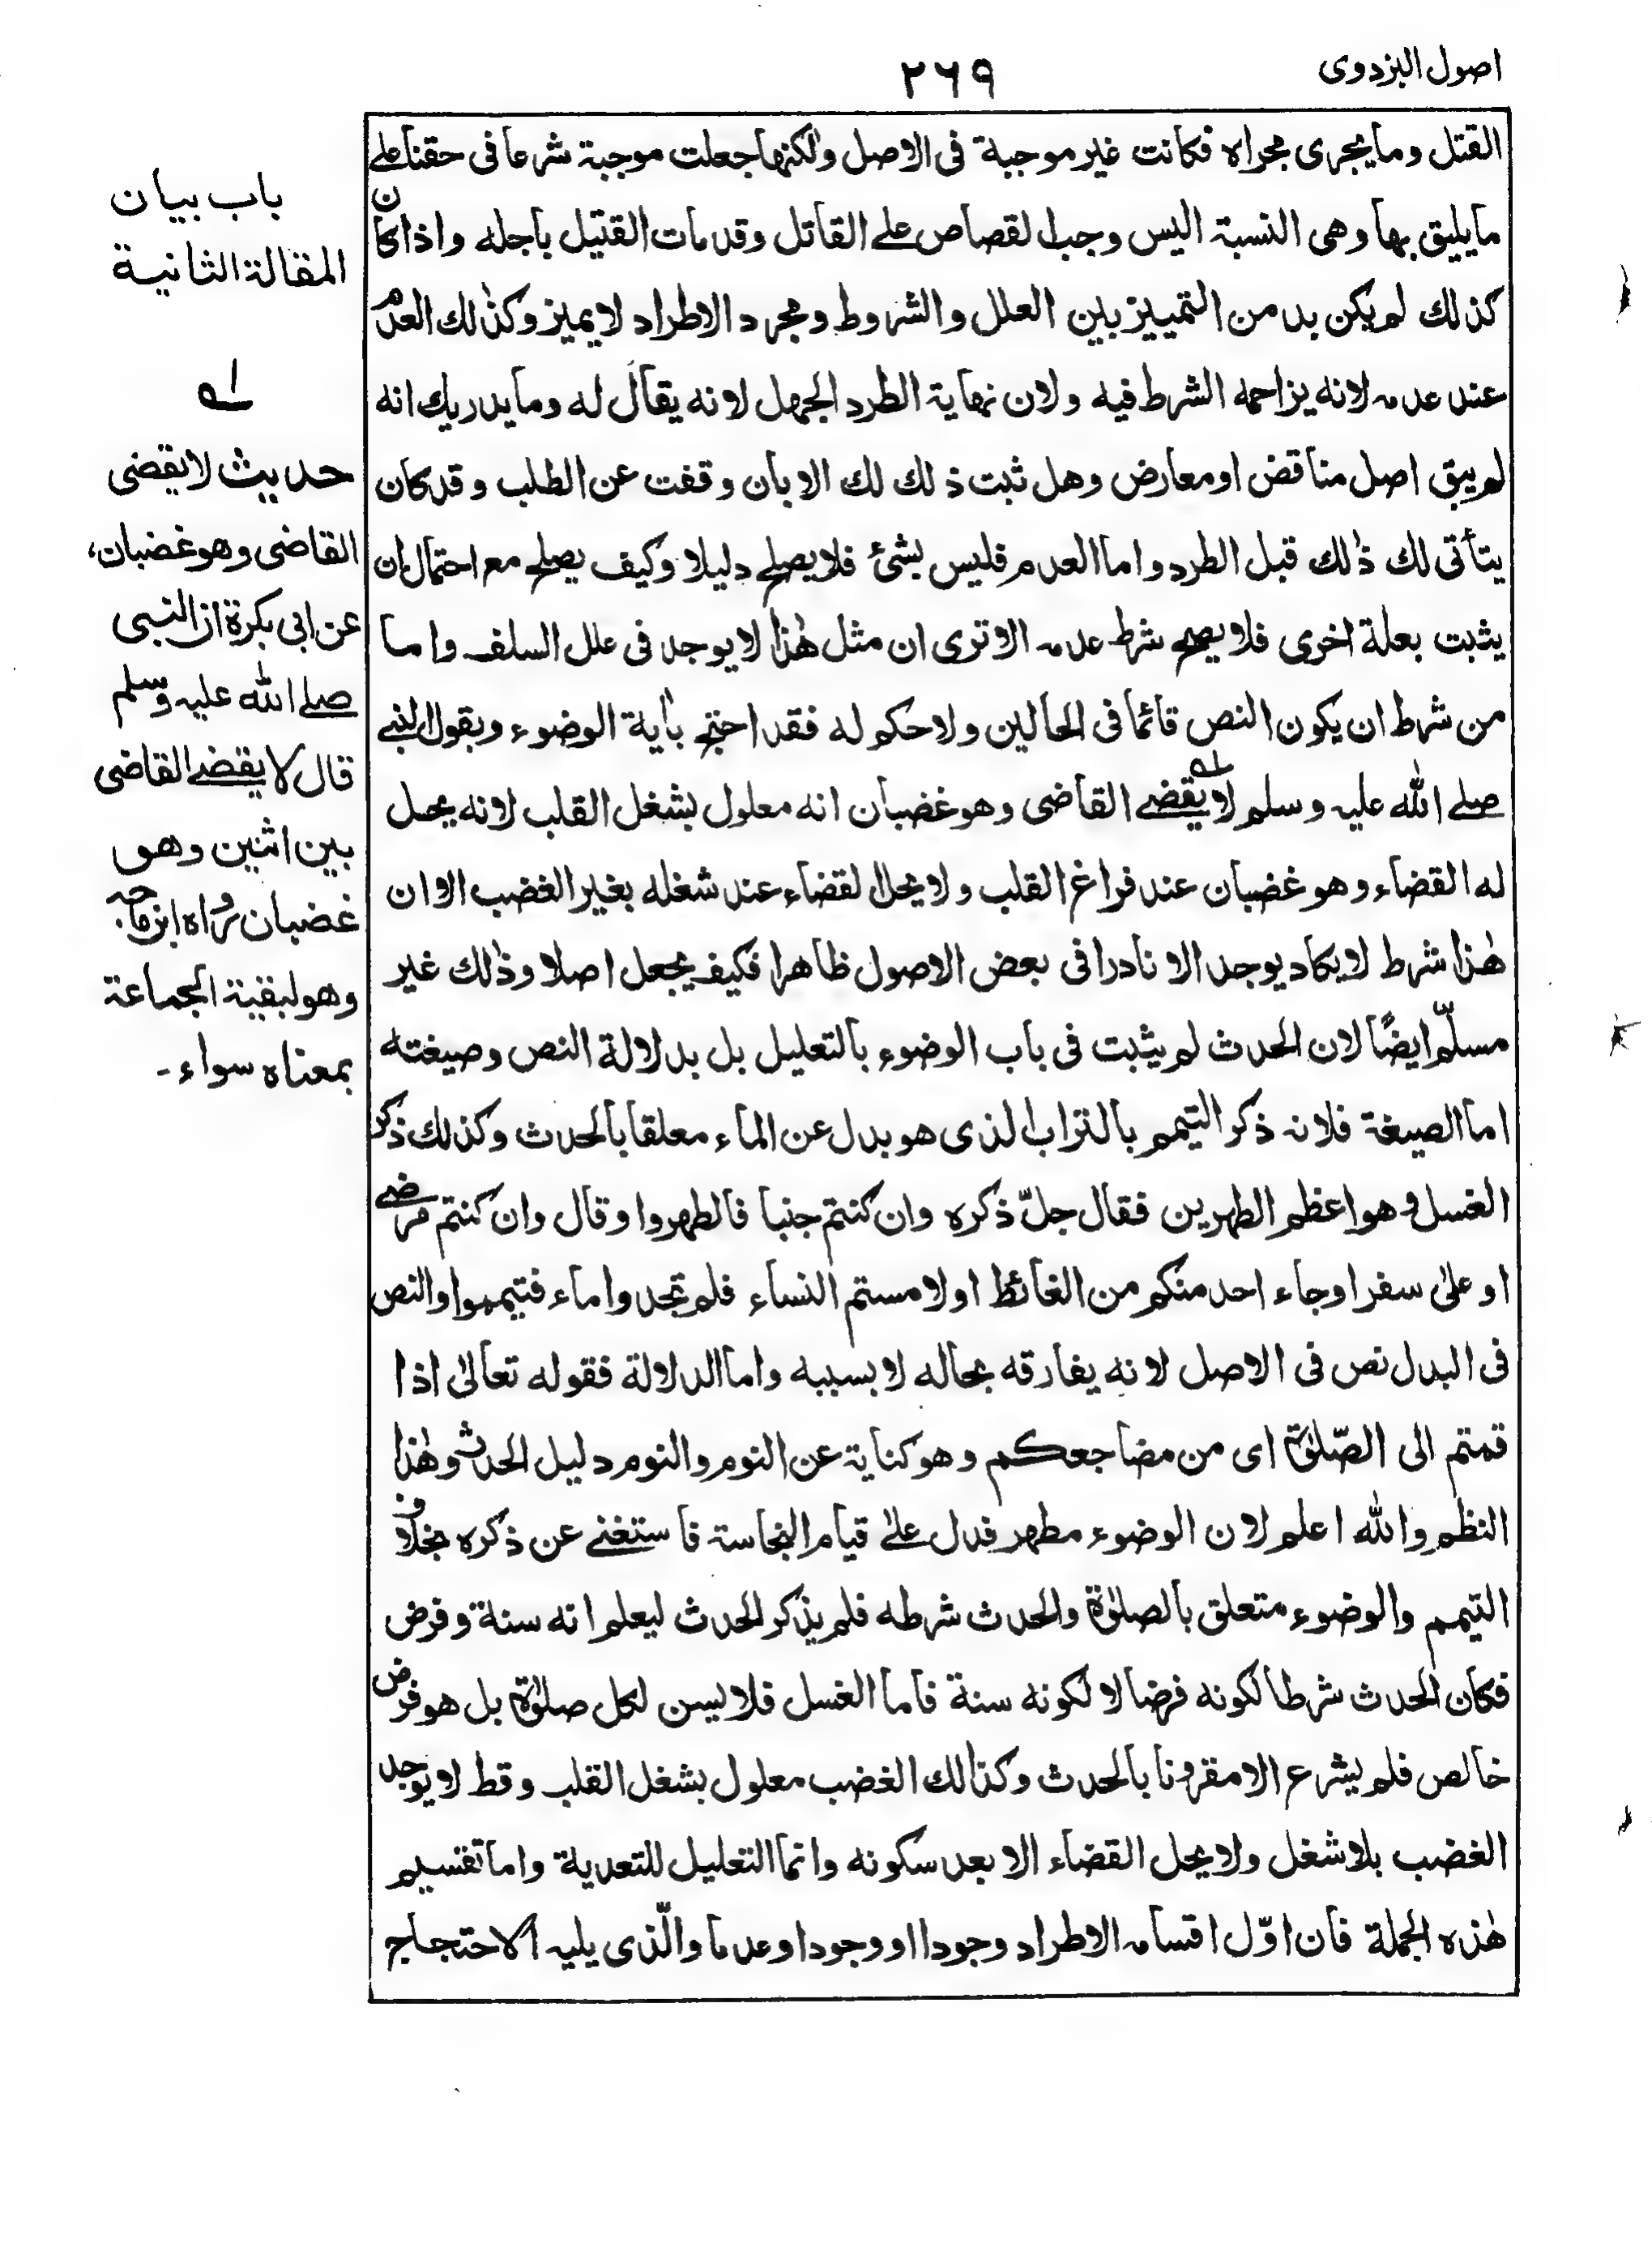 اصول البزدوی
۲۶۹
القتل وما یجری مجراه فکانت غیر موجبة فی الاصل ولکنها جعلت موجبة شرعا فی حقنا علے
ما یلیق بها وهی النسبة الیس وجب القصاص علے القاتل وقد مات القتیل باجله واذا کان
کذلك لم یکن بد من التمییز بین العلل والشروط ومجرد الاطراد لا یمیز وکذٰلك العدم
عند عدمه لانه یزاحمه الشرط فیه ولان نهایة الطرد الجهل لانه یقال له وما یدریك انه
لم یبق اصل مناقض او معارض وهل ثبت ذلك لك الا بان وقفت عن الطلب وقد کان
یتأتی لك ذٰلك قبل الطرد واما العدم فلیس بشئ فلا یصلح دلیلا وکیف یصلح مع احتمال ان
یثبت بعلة اخری فلا یصح شرط عدمه الا تری ان مثل هٰذا لا یوجد فی علل السلف واما
من شرط ان یکون النص قائما فی الحالین ولا حکم له فقد احتج بأیة الوضوء وبقول النبے
صلے الله علیه وسلم لا یقضے القاضی وهو غضبان انه معلول بشغل القلب لانه یحل
له القضاء وهو غضبان عند فراغ القلب ولا یحل القضاء عند شغله بغیر الغضب الا ان
هٰذا شرط لا یکاد یوجد الا نادرا فی بعض الاصول ظاهرا فکیف یجعل اصلا وذٰلك غیر
مسلّم ایضًا لان الحدث لم یثبت فی باب الوضوء بالتعلیل بل بدلالة النص وصیغته
اما الصیغة فلانه ذکر التیمم بالتراب الذی هو بدل عن الماء معلقا بالحدث وکذلك ذکر
الغسل وهو اعظم الطهرین فقال جلّ ذکره وان کنتم جنبا فاطهروا وقال وان کنتم مرضے
او علیٰ سفر او جاء احد منکم من الغائط او لامستم النساء فلم تجدوا ماء فتیمموا والنص
فی البدل نص فی الاصل لانه یفارقه بحاله لا بسببه واما الدلالة فقوله تعالیٰ اذا
قمتم الی الصّلوٰة ای من مضاجعکم وهو کنایة عن النوم والنوم دلیل الحدث وهٰذا
النظم والله اعلم لان الوضوء مطهر فدل علیٰ قیام النجاسة فاستغنے عن ذکره بخلاف
التیمم والوضوء متعلق بالصلوٰة والحدث شرطه فلم یذکر الحدث لیعلم انه سنة وفرض
فکان الحدث شرطا لکونه فرضا لا لکونه سنة فاما الغسل فلا یسن لکل صلوٰة بل هو فرض
خالص فلم یشرع الا مقرونا بالحدث وکذالك الغضب معلول بشغل القلب وقط لا یوجد
الغضب بلا شغل ولا یحل القضاء الا بعد سکونه وانما التعلیل للتعدیة واما تقسیم
هٰذه الجملة فان اوّل اقسامه الاطراد وجودا او وجودا وعدما والّذی یلیه الاحتجاج
باب بیان
المقالة الثانیة
لـه
حدیث لا یقضی
القاضی وهو غضبان،
عن ابی بکرة ان النبی
صلے الله علیه وسلم
قال لا یقضے القاضی
بین اثنین وهو
غضبان رواه ابن ماجه
وهو لبقیة الجماعة
بمعناه سواء۔